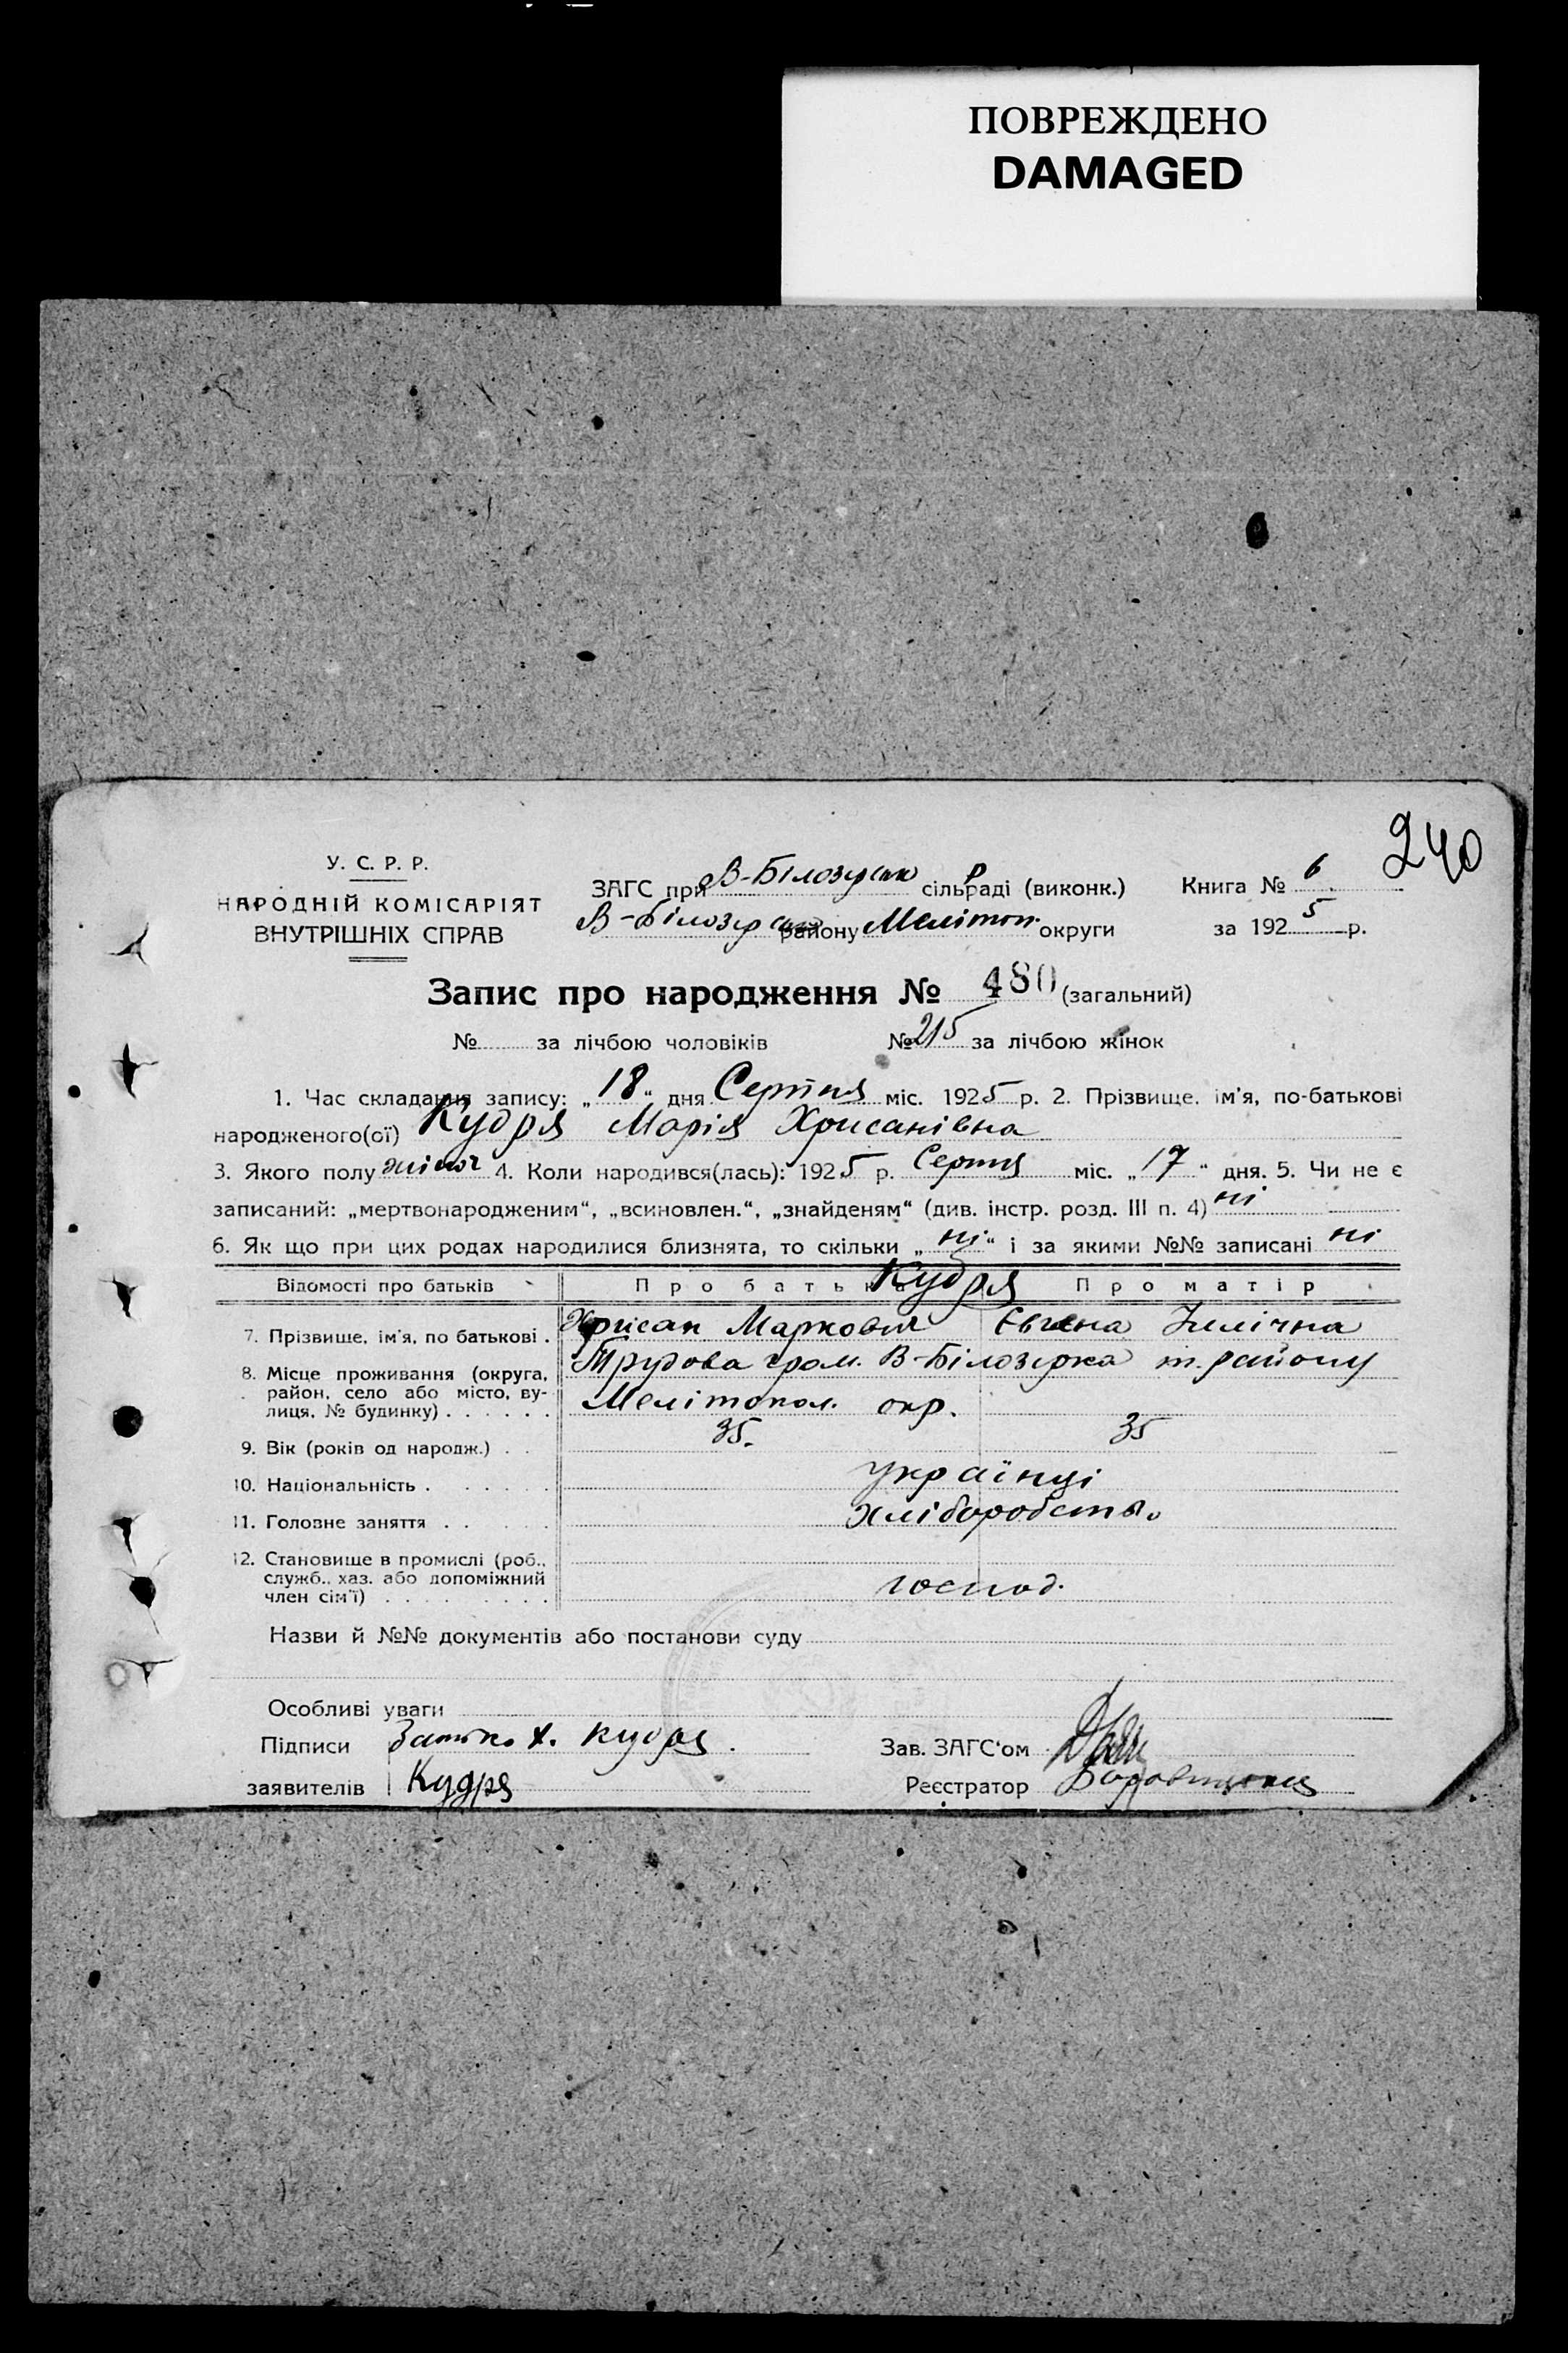 ПОВРЕЖДЕНО
DAMAGED
240
У. С. Р. Р.
НАРОДНІЙ КОМІСАРІЯТ
ВНУТРІШНІХ СПРАВ
ЗАГС при В-Білозерськ сільраді (виконк.) Книга № 6
В-Білозер району Мелітоп. округи за 1925 р.
Запис про народження № 480 (загальний)
№ за лічбою чоловіків № 215 за лічбою жінок
1. Час складання запису: „18“ дня Серпня міс. 1925 р. 2. Прізвище, ім'я, по-батькові
народженого(ої) Кудря Марія Хрисанівна
3. Якого полу жіноч 4. Коли народився(лась): 1925 р. Серпня міс. „17“ дня. 5. Чи не є
записаний: „мертвонародженим“, „всиновлен.“, „знайденям“ (див. інстр. розд. III п. 4) ні
6. Як що при цих родах народилися близнята, то скільки „ні“ і за якими №№ записані ні
Відомості про батьків Про батька Про матір
Кудря
7. Прізвище, ім'я, по батькові . Хрисан Маркович Євгена Іллічна
8. Місце проживання (округа, район, село або місто, вулиця, № будинку) . . . . . . Трудова гром. В-Білозерка т. району
Мелітопол. окр.
9. Вік (років од народж.) . . 35. 35
10. Національність . . . . . . українці
11. Головне заняття . . . . хлібороб
12. Становище в промислі (роб., служб., хаз. або допоміжний член сім'ї) . . . . . . . . господ.
Назви й №№ документів або постанови суду
Особливі уваги
Підписи Х. Кудря. Зав. ЗАГС'ом
заявителів Кудря Реєстратор